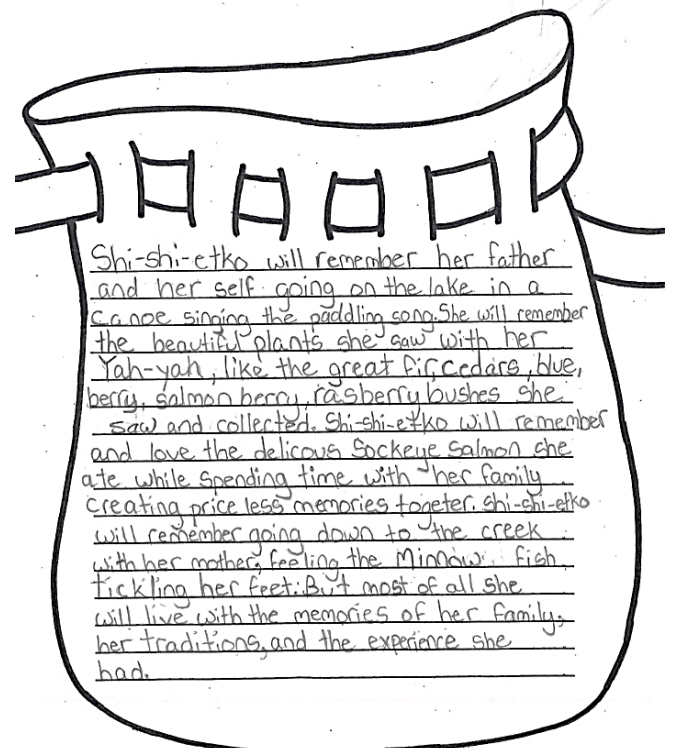 Shi-shi-etko will remember her father
and her self going on the lake in a
canoe singing the paddling song. She will remember
the beautiful plants she saw with her
Yah-yah, like the great fir, cedars, blue,
berry, salmon berry, rasberry bushes she
saw and collected. Shi-shi-etko will remember
and love the delicous Sockeye Salmon she
ate while spending time with her family
creating price less memories togeter. Shi-shi-etko
will remember going down to the creek
with her mother, feeling the Minnow fish
tickling her feet. But most of all she
will live with the memories of her family,
her traditions, and the experience she
had.